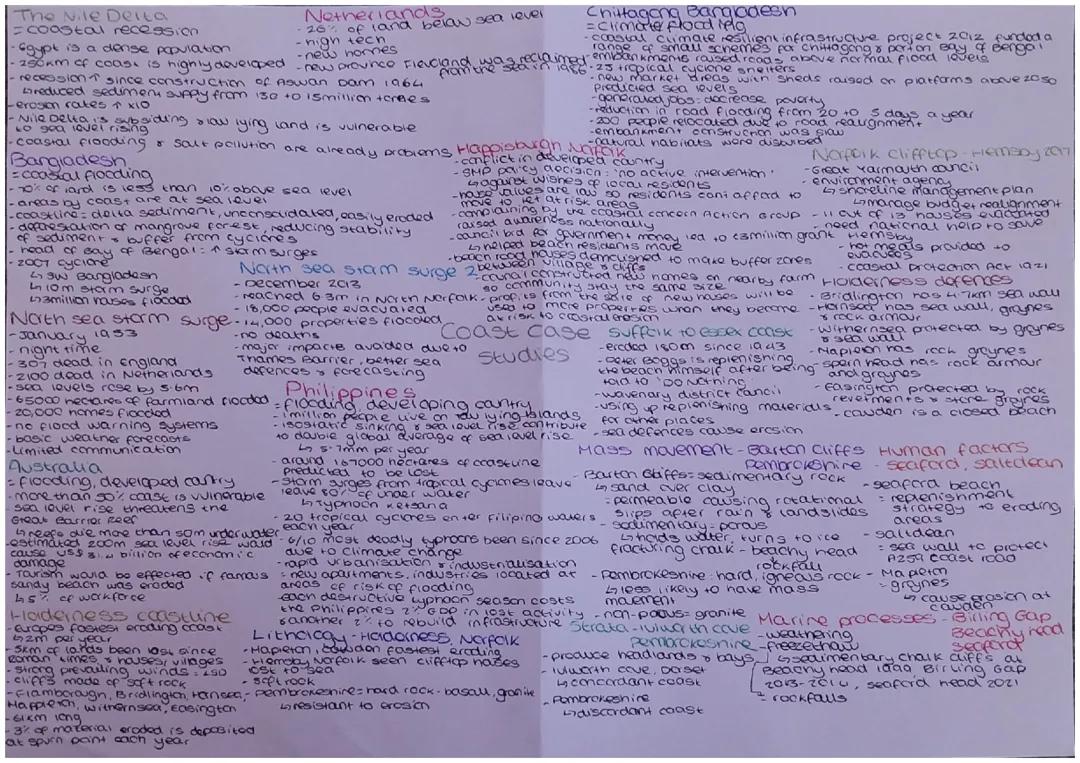 The Nile Delta
= coastal recession
- Egypt is a dense population
- 250km of coast is highly developed
- recession ↑ since construction of Aswan Dam 1964
↳ reduced sediment supply from 130 to 15million tonnes
- erosion rates ↑ x10
- Nile Delta is subsiding & low lying land is vulnerable
to sea level rising
- coastal flooding & salt pollution are already problems
Netherlands
- 26% of land below sea level
- high tech
- new homes
- new province Flevoland was reclaimed
from the sea in 1986
Chittagong Bangladesh
= climate flooding
- coastal climate resilient infrastructure project 2012 funded a
range of small schemes for Chittagong & port on Bay of Bengal
- embankments raised roads above normal flood levels
- 25 tropical cyclone shelters
- new market areas with sheds raised on platforms above 2050
predicted sea levels
- generated jobs = decrease poverty
- reduction in road flooding from 20 to 5 days a year
- 200 people relocated due to road realignment
- embankment construction was slow
- natural habitats were disturbed
Bangladesh
= coastal flooding
- 70% of land is less than 10% above sea level
- areas by coast are at sea level
- coastline = delta sediment, unconsolidated, easily eroded
- deforestation of mangrove forest, reducing stability
of sediment & buffer from cyclones
- head of Bay of Bengal = ↑ storm surges
- 2007 cyclone
↳ SW Bangladesh
↳ 10m storm surge
↳ 3million houses flooded
Happisburgh Norfolk
- conflict in developed country
- SMP policy decision = 'no active intervention'
↳ against wishes of local residents
- house values are low so residents cant afford to
move to let at risk areas
- complaining by the Coastal Concern Action Group
raised awareness nationally
- council bid for government money led to £3million grant
↳ helped beach residents move
- beach road houses demolished to make buffer zones
between village & cliffs
- council constructed new homes on nearby farm
so community stay the same size
- profits from the sale of new houses will be
used to more properties when they become
at risk to coastal erosion
Norfolk clifftop - Hemsby 2017
- Great Yarmouth council
- environment agency
↳ shoreline management plan
↳ manage budget realignment
- 11 out of 13 houses evacuated
- need national help to save
Hemsby
- hot meals provided to
evacuees
- Coastal Protection Act 1921
North sea storm surge 2
- December 2013
- reached 6.3m in North Norfolk
- 18,000 people evacuated
- 14,000 properties flooded
- no deaths
- major impacts avoided due to
Thames Barrier, better sea
defences & forecasting
North sea storm surge
- January 1953
- night time
- 307 dead in England
- 2100 dead in Netherlands
- sea levels rose by 5.6m
- 65000 hectares of farmland flooded
- 20,000 homes flooded
- no flood warning systems
- basic weather forecasts
- limited communication
Coast case
studies
Suffolk to Essex coast
- eroded 180m since 1943
- Peter Boggs is replenishing
the beach himself after being
told to 'DO NOTHING'
- Wavenary district council
- using up replenishing materials
for other places
- sea defences cause erosion
Holderness defences
- Bridlington has 4.7km sea wall
- Hornsea has sea wall, groynes
& rock armour
- Withernsea protected by groynes
& sea wall
- Mapleton has rock groynes
- Spurn head has rock armour
and groynes
- Easington protected by rock
revetments & stone groynes
- Cowden is a closed beach
Philippines
= flooding, developing country
- million people live on low lying islands
- isostatic sinking & sea level rise contribute
to double global average of sea level rise
↳ 5-7mm per year
- around 167000 hectares of coastline
predicted to be lost
- storm surges from tropical cyclones leave
leave 80% of under water
↳ Typhoon Ketsana
- 20 tropical cyclones enter Filipino waters
each year
- 6/10 most deadly typhoons been since 2006
due to climate change
- rapid urbanisation & industrialisation
= new apartments, industries located at
areas of risk of flooding
- each destructive typhoon season costs
the Philippines 2% GDP in lost activity
& another 2% to rebuild infrastructure
Australia
= flooding, developed country
- more than 50% coast is vulnerable
- sea level rise threatens the
Great Barrier Reef
↳ reefs die more than 50m underwater
- estimated 200m sea level rise would
cause US$ billion of economic
damage
- Tourism would be effected if famous
sandy beach was eroded
↳ 5% of workforce
Mass movement - Barton Cliffs
Pembrokeshire
- Barton Cliffs = sedimentary rock
↳ sand over clay
= permeable causing rotational
slips after rain & landslides
- sedimentary = porous
↳ holds water, turns to ice
fracturing chalk - Beachy Head
rockfall
- Pembrokeshire = hard, igneous rock
↳ less likely to have mass
movement
- non-porous = granite
Human factors
- Seaford, Saltdean
- Seaford beach
= replenishment
strategy to eroding
areas
- Saltdean
= sea wall to protect
A259 coast road
- Mapleton
= groynes
↳ cause erosion at
Cowden
Holderness coastline
- Europes fastest eroding coast
↳ 2m per year
- 5km of lands been lost since
Roman times & houses/villages
- strong prevailing winds = 250
- cliffs made of soft rock
- Flamborough, Bridlington, Hornsea,
Mappleton, Withernsea, Easington
- 61km long
- 3% of material eroded is deposited
at Spurn Point each year
Lithology - Holderness, Norfolk
- Mapleton, Cowden fastest eroding
- Hemsby Norfolk seen clifftop houses
lost to sea
- soft rock
- Pembrokeshire = hard rock - basalt, granite
↳ resistant to erosion
Strata - Lulworth Cove
Pembrokeshire
- produce headlands & bays
- Lulworth Cove, Dorset
↳ concordant coast
- Pembrokeshire
↳ discordant coast
Marine processes - Birling Gap
Beachy Head
Seaford
- weathering
- freezethaw
↳ sedimentary chalk cliffs at
Beachy head 1999 Birling Gap
2013-2014, Seaford head 2021
- rockfalls